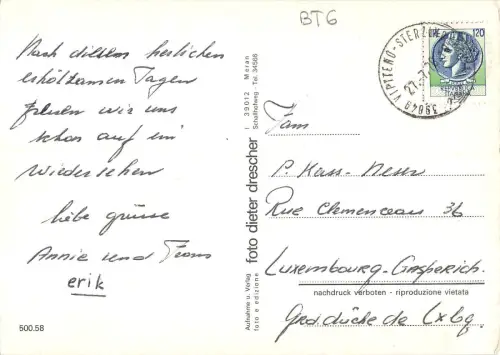 BT6
Nach diesen herrlichen
erholsamen Tagen
freuen wir uns
schon auf ein
Wiedersehen
liebe grüsse
Annie und Frans
erik
500.58
Aufnahme u. Verlag
foto e edizione
foto dieter drescher
I 39012 Meran
Schafferweg - Tel. 34588
120
39049 VIPITENO-STERZING
Fam
P. Kass-
Rue Clemenceau 36
Luxembourg-Gasperich.
nachdruck verboten - riproduzione vietata
Gr. duché de Lxbg.